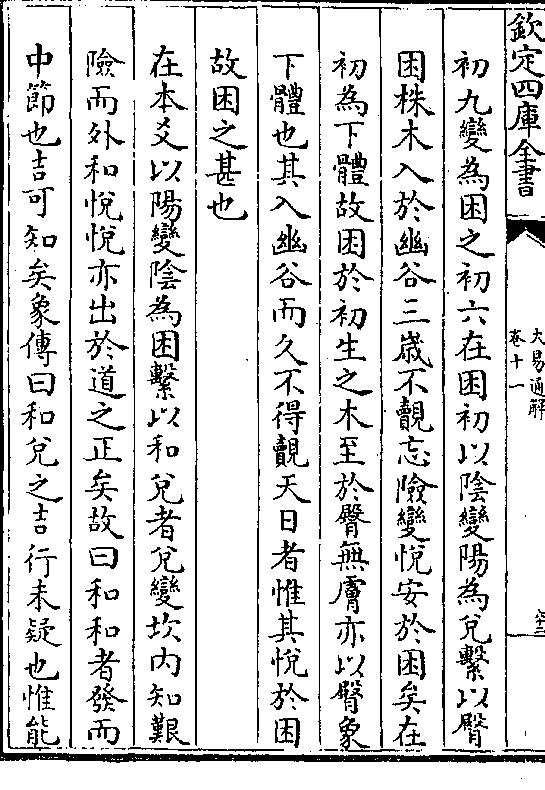 欽定四庫全書
大易通解
卷十一
初九變為困之初六在困初以陰變陽為兌繫以臀
困株木入於幽谷三歲不覿忘險變悅安於困矣在
初為下體故困於初生之木至於臀無膚亦以臀象
下體也其入幽谷而久不得覿天日者惟其悅於困
故困之甚也
在本爻以陽變陰為困繫以和兌者兌變坎內知艱
險而外和悅悅亦出於道之正矣故曰和和者發而
中節也吉可知矣象傳曰和兌之吉行未疑也惟能